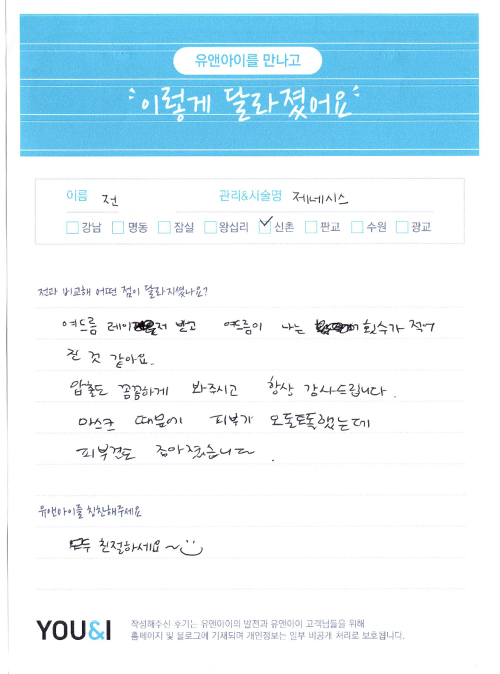 유앤아이를 만나고
이렇게 달라졌어요
이름 전 관리&시술명 제네시스
강남 명동 잠실 왕십리 신촌 판교 수원 광교
전과 비교해 어떤 점이 달라지셨나요?
여드름 레이저 받고 여드름이 나는 횟수가 적어
진 것 같아요.
압출도 꼼꼼하게 봐주시고 항상 감사드립니다.
마스크 때문에 피부가 오돌토돌했는데
피부결도 좋아졌습니다.
유앤아이를 칭찬해주세요
모두 친절하세요~
YOU&I
작성해주신 후기는 유앤아이의 발전과 유앤아이 고객님들을 위해
홈페이지 및 블로그에 기재되며 개인정보는 일부 비공개 처리로 보호됩니다.